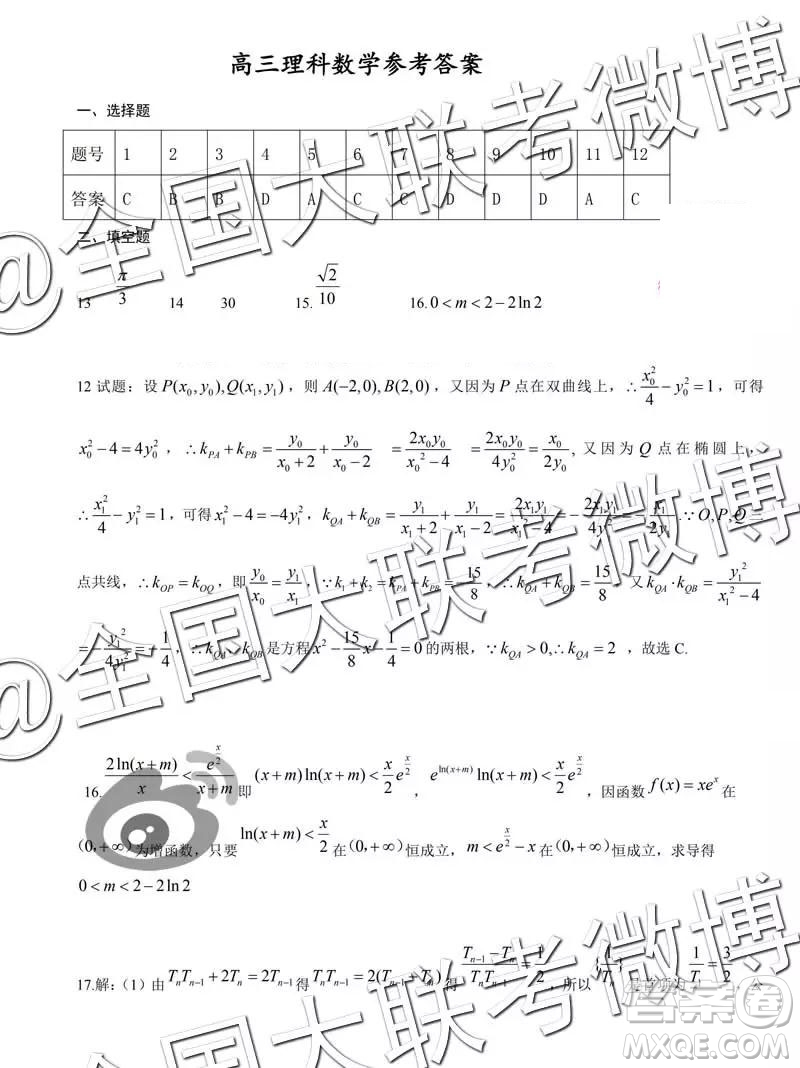 高三理科数学参考答案
一、选择题
题号 1 2 3 4 5 6 7 8 9 10 11 12
答案 C B B D A C C D D D A C
二、填空题
13 π/3 14 30 15. √2/10 16. 0 < m < 2 − 2ln2
12 试题：设 P(x₀, y₀), Q(x₁, y₁)，则 A(−2,0), B(2,0)，又因为 P 点在双曲线上，∴ x₀²/4 − y₀² = 1，可得
x₀² − 4 = 4y₀²，∴ k_PA + k_PB = y₀/(x₀+2) + y₀/(x₀−2) = 2x₀y₀/(x₀²−4) = 2x₀y₀/4y₀² = x₀/2y₀, 又因为 Q 点在椭圆上，
∴ x₁²/4 − y₁² = 1，可得 x₁² − 4 = −4y₁²，k_QA + k_QB = y₁/(x₁+2) + y₁/(x₁−2) = 2x₁y₁/(x₁²−4) = −2x₁y₁/4y₁² = −x₁/2y₁ .∵ O, P, Q 三
点共线，∴ k_OP = k_OQ，即 y₀/x₀ = y₁/x₁，∵ k₁ + k₂ = k_PA + k_PB = −15/8，∴ k_QA + k_QB = 15/8 又 k_QA · k_QB = y₁²/(x₁²−4)
= −y₁²/4y₁² = −1/4，∴ k_QA、k_QB 是方程 x² − 15/8 x − 1/4 = 0 的两根，∵ k_QA > 0, ∴ k_QA = 2 ，故选 C.
16. 2ln(x+m)/x < e^(x/2)/(x+m) 即 (x+m)ln(x+m) < x/2 e^(x/2)，e^(ln(x+m)) ln(x+m) < x/2 e^(x/2)，因函数 f(x) = xe^x 在
(0,+∞) 为增函数，只要 ln(x+m) < x/2 在 (0,+∞) 恒成立，m < e^(x/2) − x 在 (0,+∞) 恒成立，求导得
0 < m < 2 − 2ln2
17.解：（1）由 TₙTₙ₋₁ + 2Tₙ = 2Tₙ₋₁ 得 TₙTₙ₋₁ = 2(Tₙ₋₁ − Tₙ) 得 (Tₙ₋₁ − Tₙ)/TₙTₙ₋₁ = 1/2，所以 {1/Tₙ} 是首项为 1/T₁ = 3/2，公
@全国大联考微博
@全国大联考微博
@全国大联考微博
答案卷
MXQE.COM